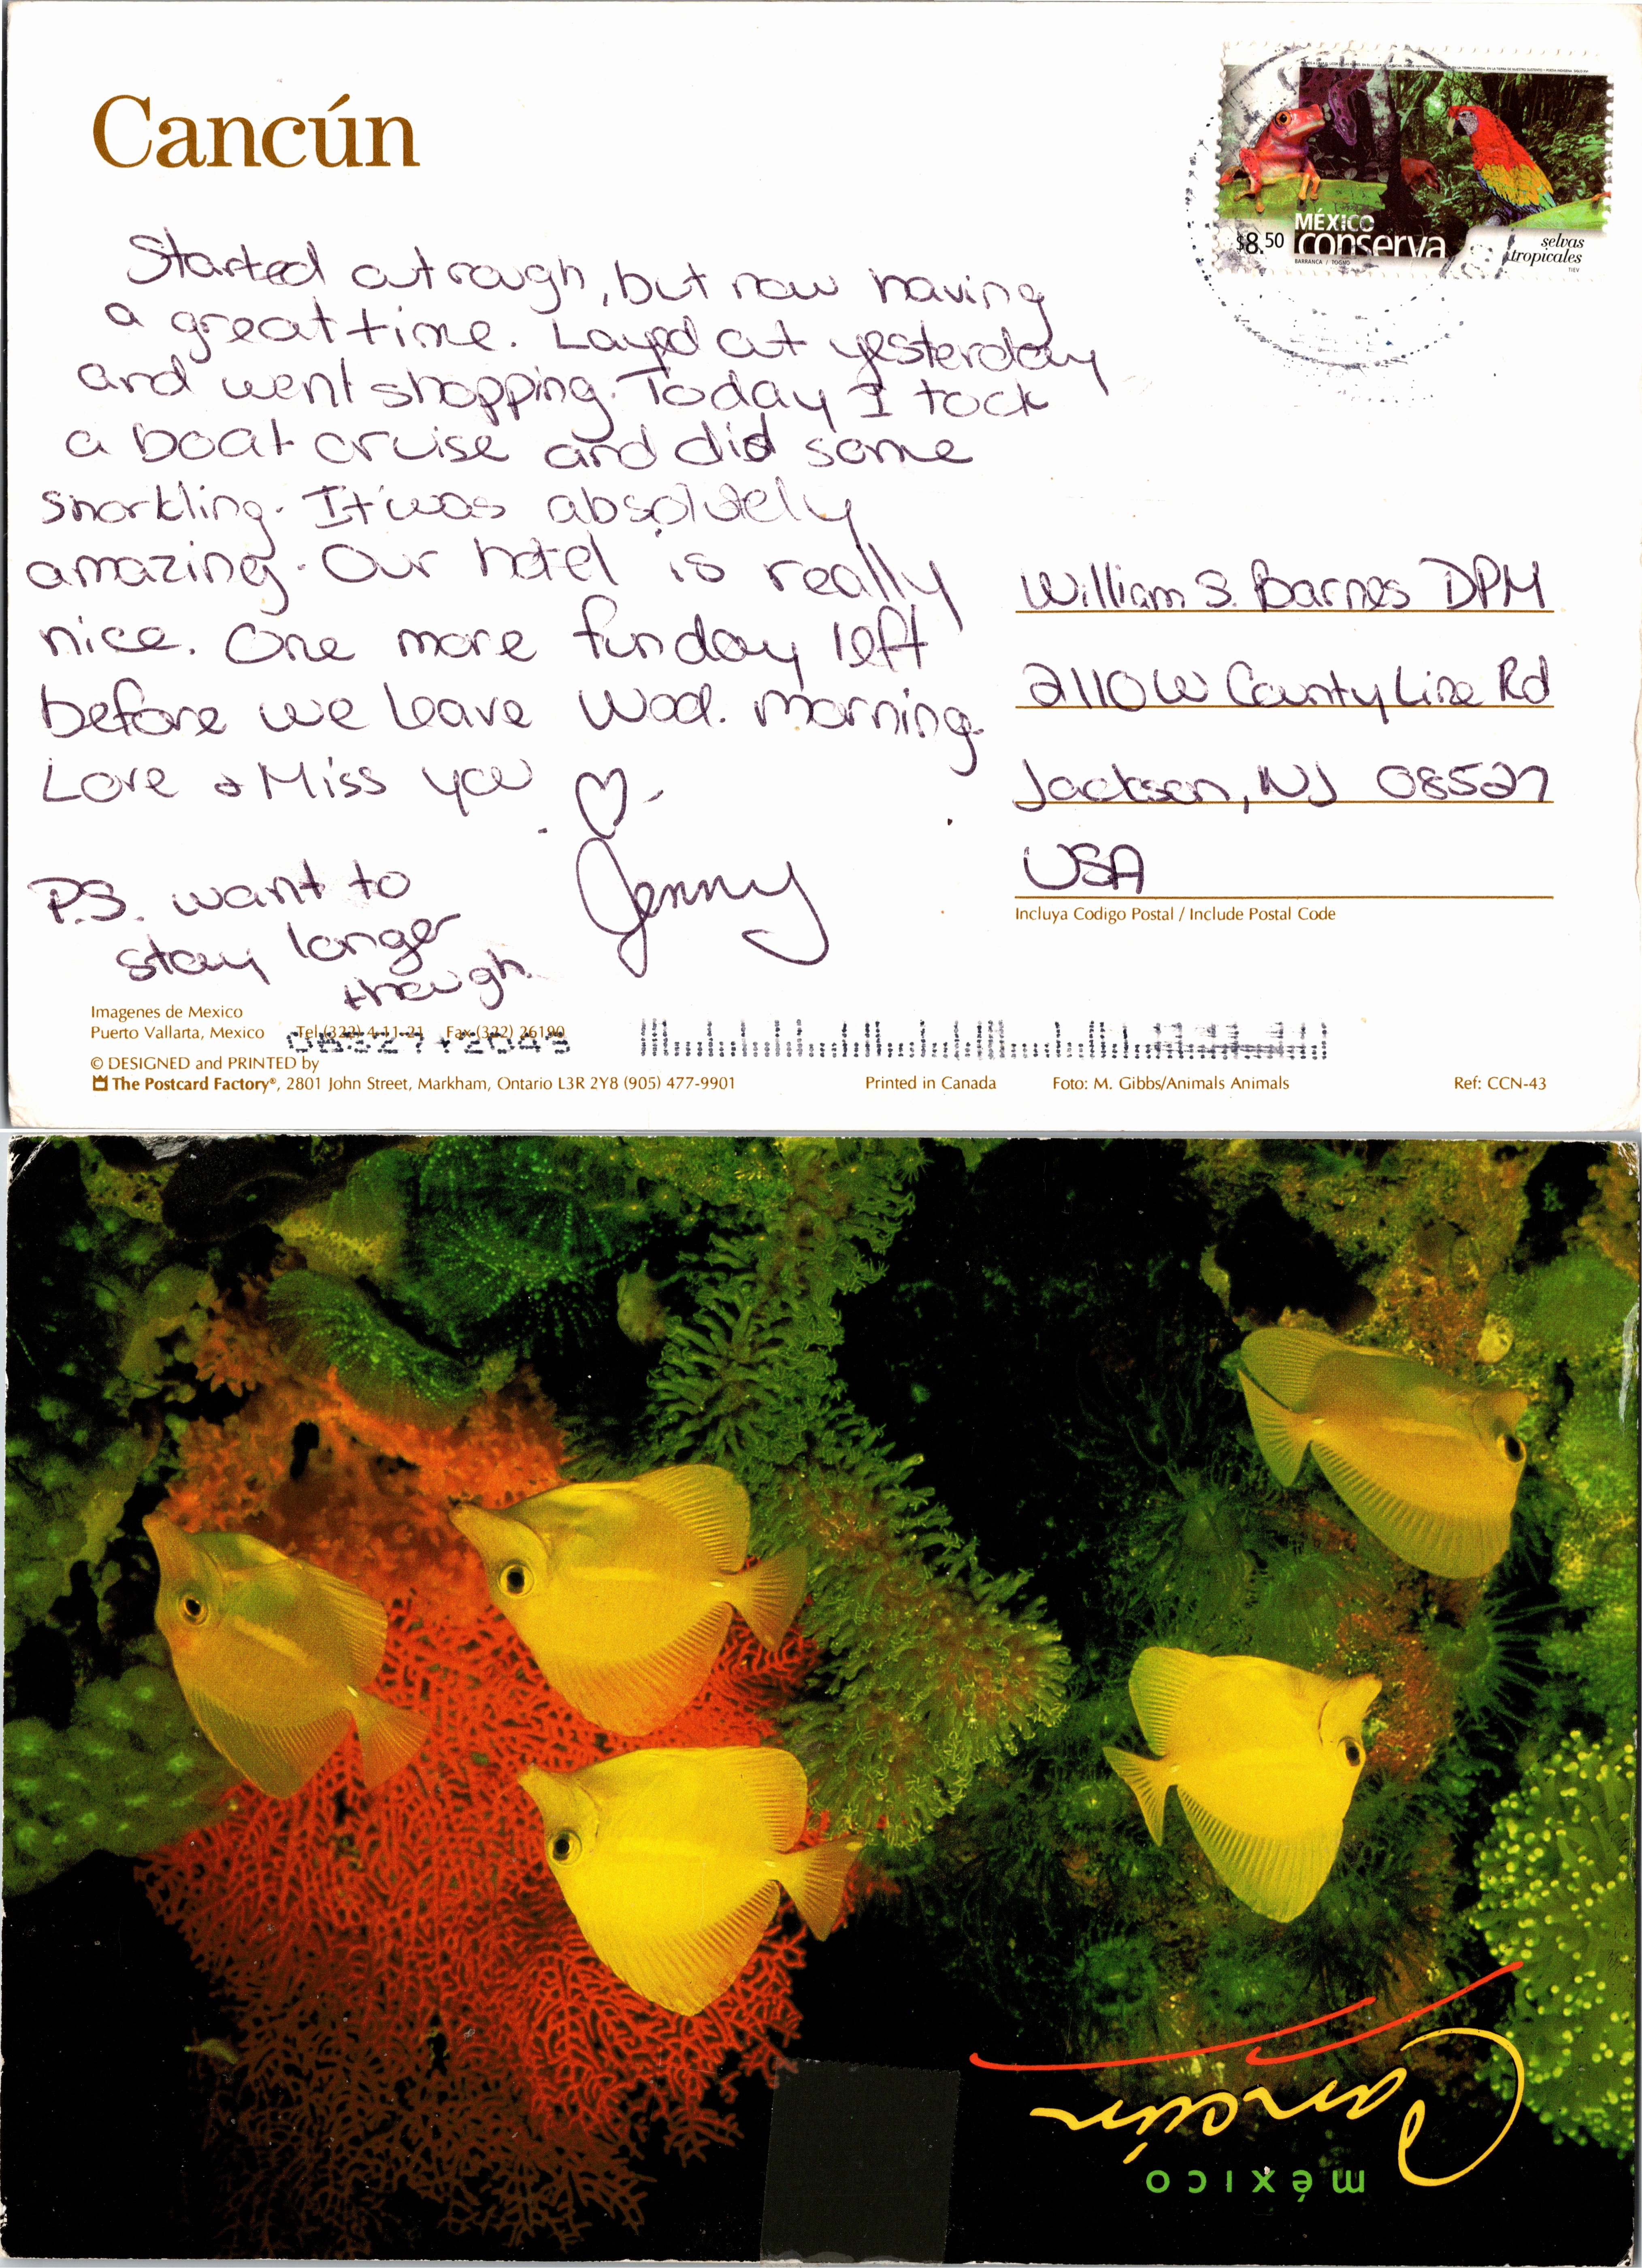 Cancún
MÉXICO
$8.50 conserva
selvas
tropicales
TIEV
BARRANCA / TOGNO
Started out rough, but now having
a great time. Layed out yesterday
and went shopping. Today I took
a boat cruise and did some
snorkling. It was absolutely
amazing. Our hotel is really
nice. One more fun day left
before we leave Wed. morning.
Love & Miss you ♡
Jenny
P.S. want to
stay longer
though.
William S. Barnes DPM
2110 W County Line Rd
Jackson, NJ 08527
USA
Incluya Codigo Postal / Include Postal Code
Imagenes de Mexico
Puerto Vallarta, Mexico Tel (322) 4-11-21 Fax (322) 26190
08527+2049
© DESIGNED and PRINTED by
The Postcard Factory®, 2801 John Street, Markham, Ontario L3R 2Y8 (905) 477-9901 Printed in Canada Foto: M. Gibbs/Animals Animals Ref: CCN-43
Cancún
méxico